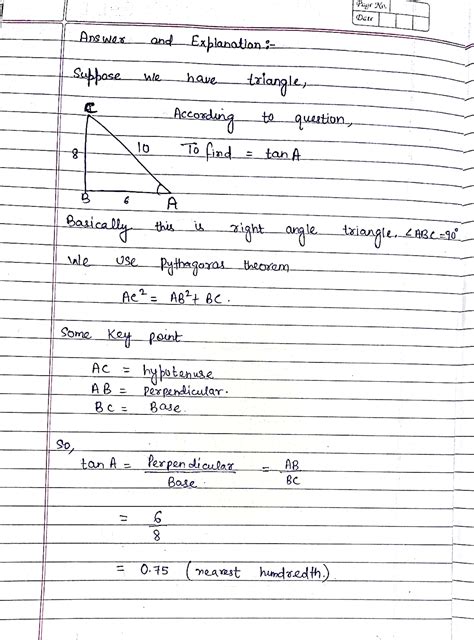 Page No.
Date
Answer and Explanation:-
Suppose we have triangle,
According to question,
To find = tan A
C
8
10
B
6
A
Basically this is right angle triangle, ∠ABC=90°
We use Pythagoras theorem
AC² = AB² + BC.
Some Key point
AC = hypotenuse
AB = perpendicular.
BC = Base.
So,
tan A = Perpendicular / Base = AB / BC
= 6 / 8
= 0.75 (nearest hundredth.)